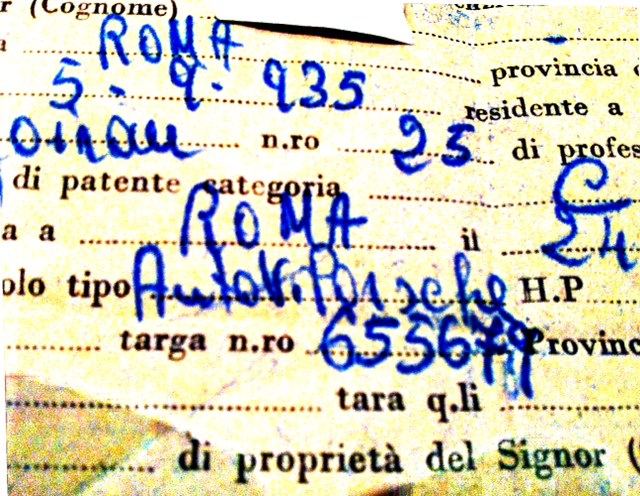 (Cognome)
ROMA provincia
5-9-935 residente a
n.ro 25 di profes
di patente categoria C
a a ROMA il 24
olo tipo Autov. Porsche H.P
targa n.ro Provinc
tara q.li
di proprietà del Signor (